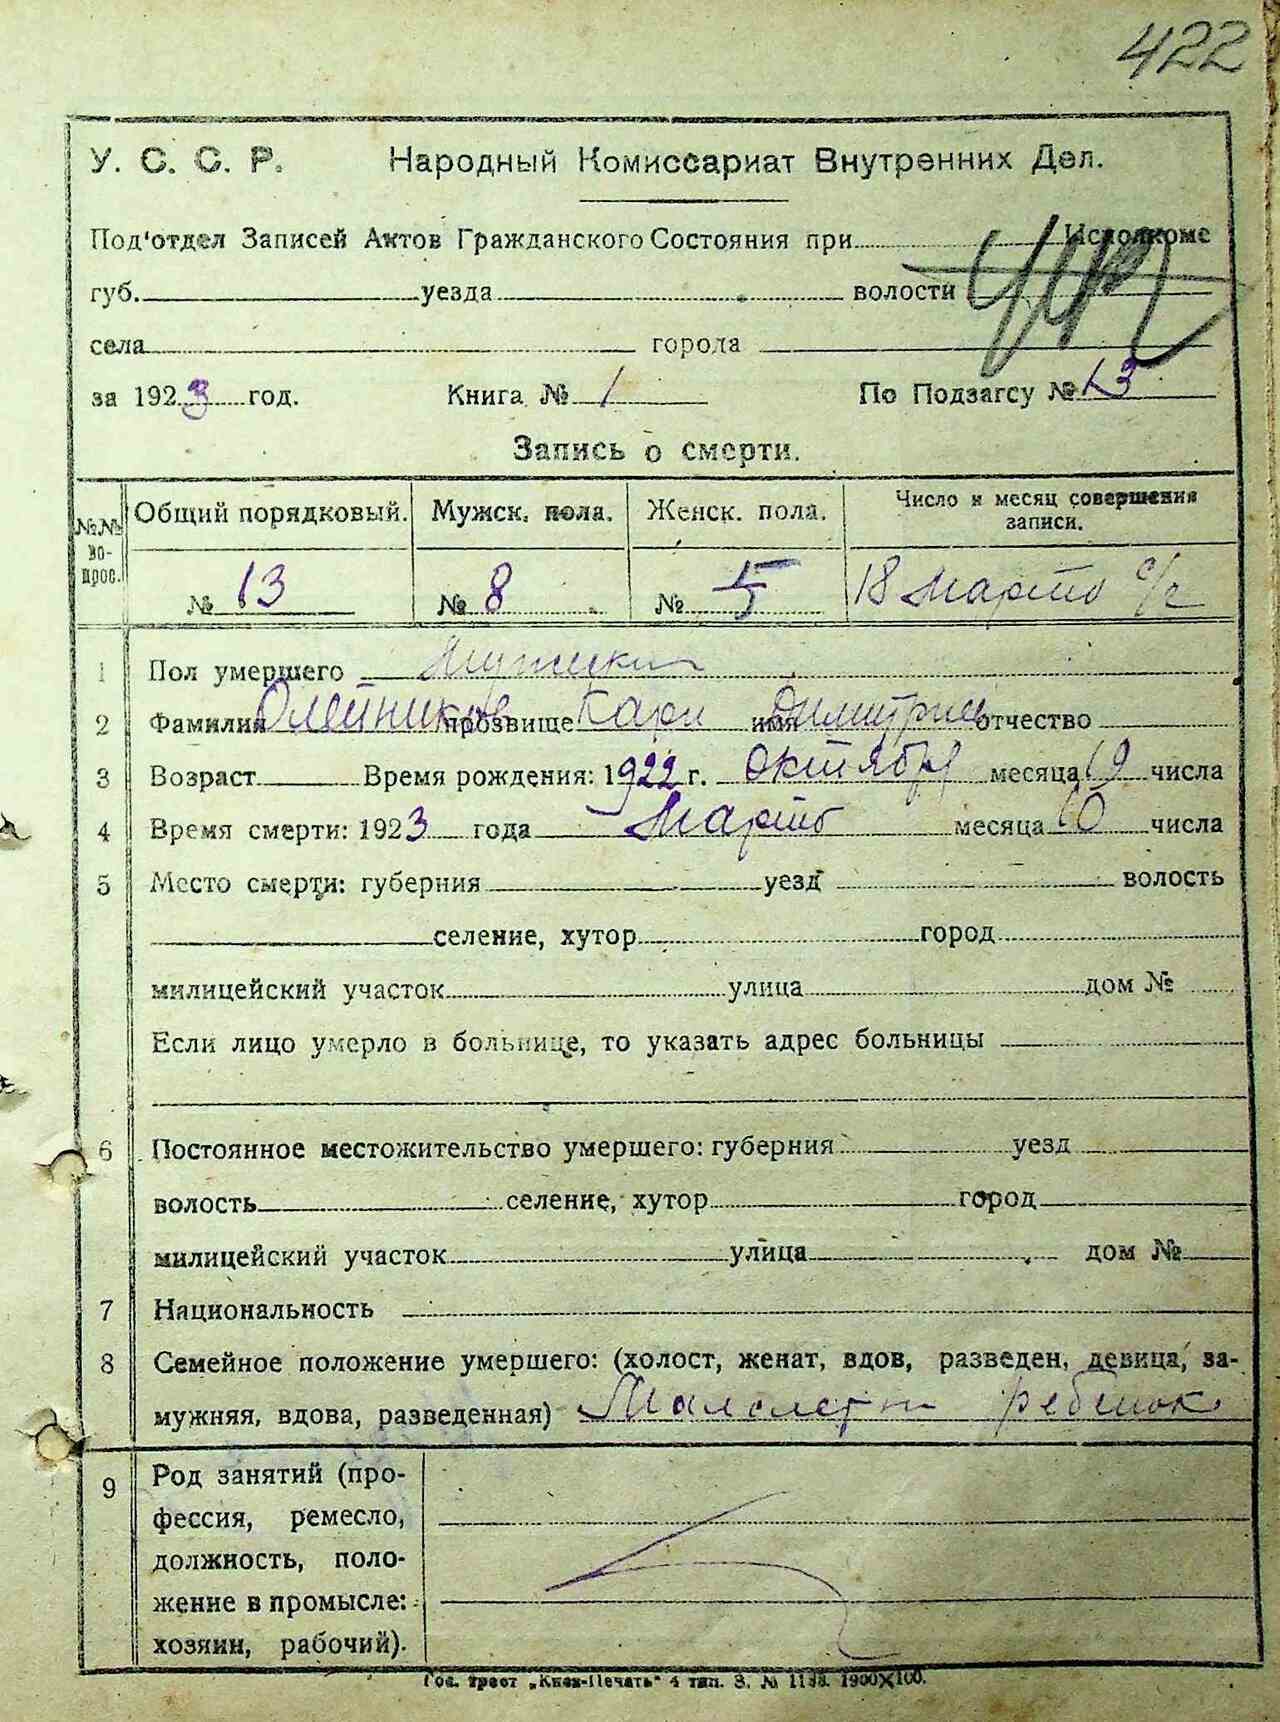 422
У. С. С. Р. Народный Комиссариат Внутренних Дел.
Под'отдел Записей Актов Гражданского Состояния при Исполкоме
губ. уезда волости
села города
за 1923 год. Книга № 1 По Подзагсу № 13
Запись о смерти.
№№ вопрос. Общий порядковый. Мужск. пола. Женск. пола. Число и месяц совершения записи.
№ 13 № 8 № 5 18 Марта с/г
1 Пол умершего Мужской
2 Фамилия Олейников прозвище Карл имя Димитриев отчество
3 Возраст Время рождения: 1922 г. октября месяца 19 числа
4 Время смерти: 1923 года Марта месяца 10 числа
5 Место смерти: губерния уезд волость
селение, хутор город
милицейский участок улица дом №
Если лицо умерло в больнице, то указать адрес больницы
6 Постоянное местожительство умершего: губерния уезд
волость селение, хутор город
милицейский участок улица дом №
7 Национальность
8 Семейное положение умершего: (холост, женат, вдов, разведен, девица, за-
мужняя, вдова, разведенная) ребенок
9 Род занятий (про-
фессия, ремесло,
должность, поло-
жение в промысле:
хозяин, рабочий).
Гос. трест „Киев-Печать" 4 тип. З. № 1198. 1900X100.